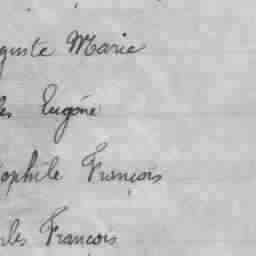 guste Marie
les Eugène
éophile François
rles François